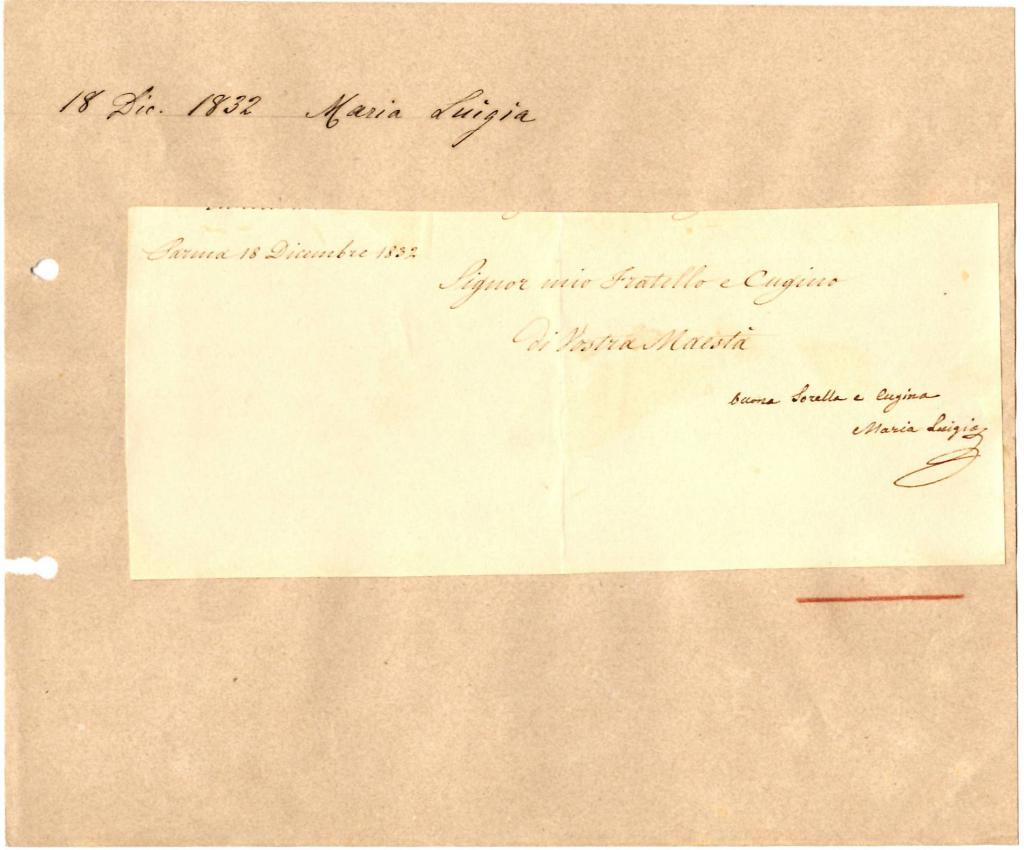 18 Dic. 1832 Maria Luigia
Parma 18 Dicembre 1832
Signor mio Fratello e Cugino
di Vostra Maestà
buona Sorella e Cugina
Maria Luigia